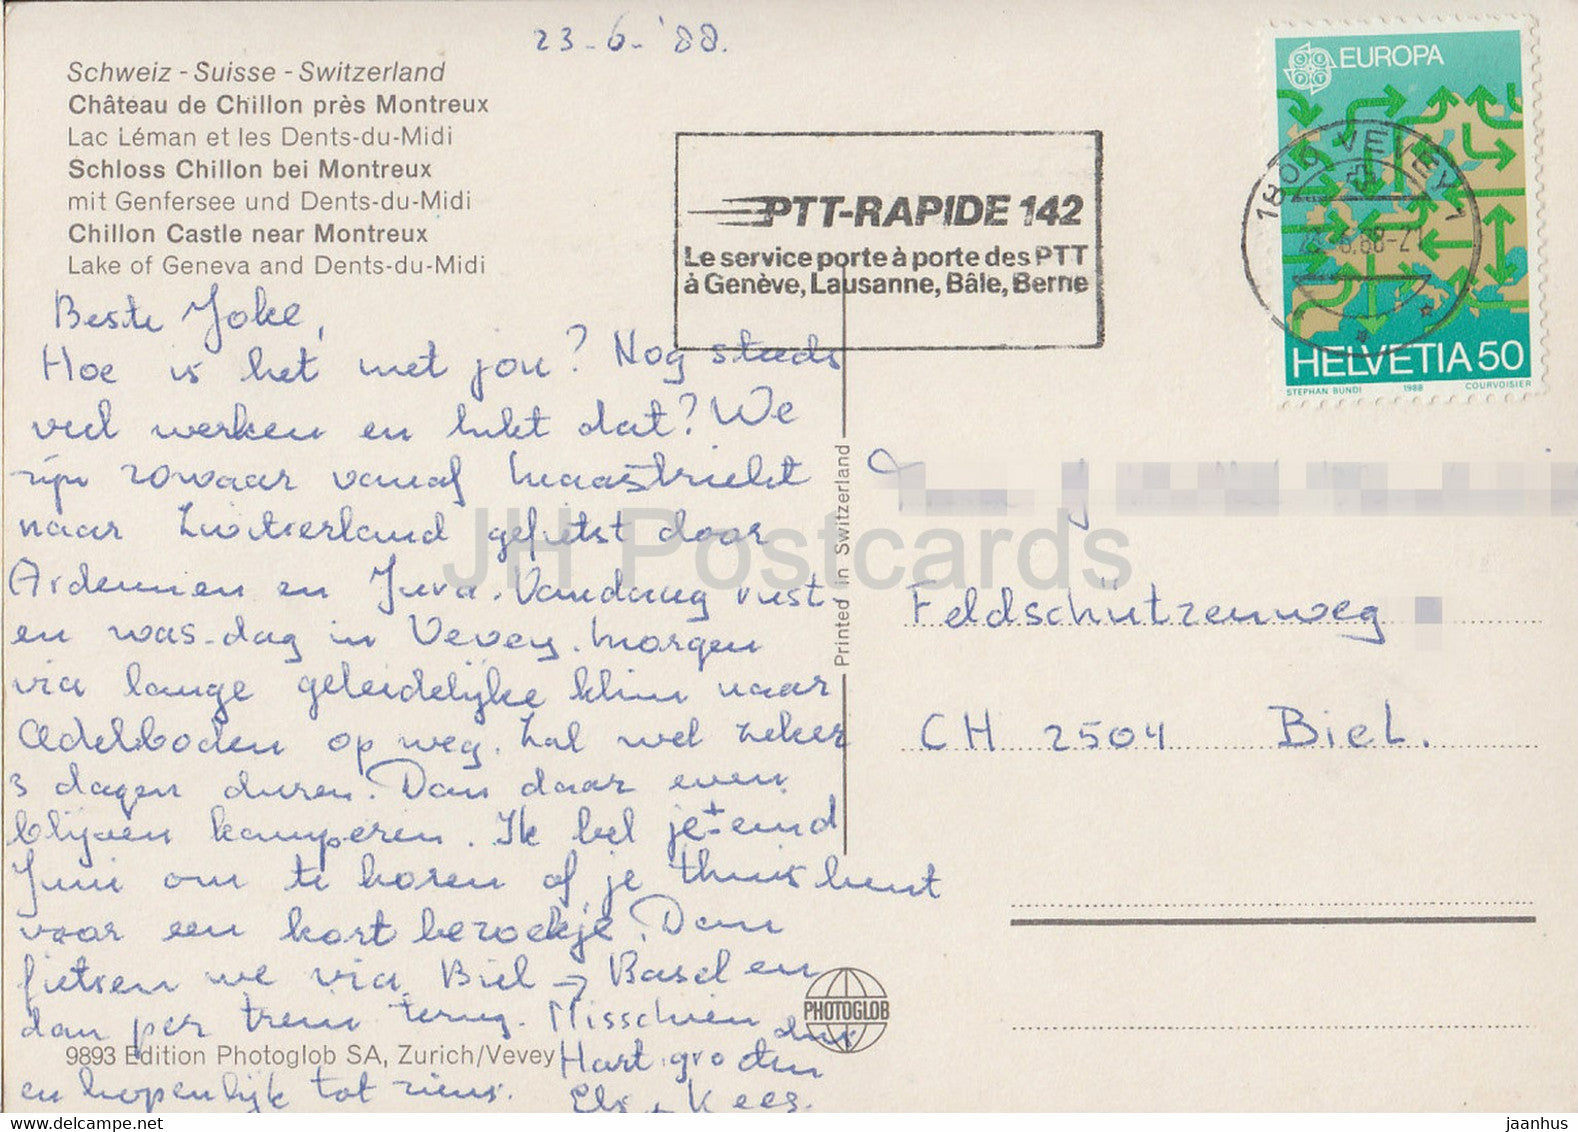 23-6-'88.
Schweiz - Suisse - Switzerland
Château de Chillon près Montreux
Lac Léman et les Dents-du-Midi
Schloss Chillon bei Montreux
mit Genfersee und Dents-du-Midi
Chillon Castle near Montreux
Lake of Geneva and Dents-du-Midi
Beste Joke,
Hoe is het met jou? Nog steeds
veel werken en lukt dat? We
zijn zowaar vanaf Maastricht
naar Zwitserland gefietst door
Ardennen en Jura. Vandaag rust-
en was-dag in Vevey. Morgen
via lange geleidelijke klim naar
Adelboden op weg. Zal wel zeker
3 dagen duren. Dan daar even
blijven kamperen. Ik bel je ± eind
Juni om te horen of je thuis bent
voor een kort bezoekje. Dan
fietsen we via Biel → Basel en
dan per trein terug. Misschien dus
en hopenlijk tot ziens.
Hart. groeten
Els + Kees.
9893 Edition Photoglob SA, Zurich/Vevey
PHOTOGLOB
Printed in Switzerland
PTT-RAPIDE 142
Le service porte à porte des PTT
à Genève, Lausanne, Bâle, Berne
CEPT
EUROPA
1800 VEVEY 1
HELVETIA 50
STEPHAN BUNDI 1988 COURVOISIER
Feldschützenweg
CH 2504 Biel.
JH Postcards
hipwee.com
jaanhus